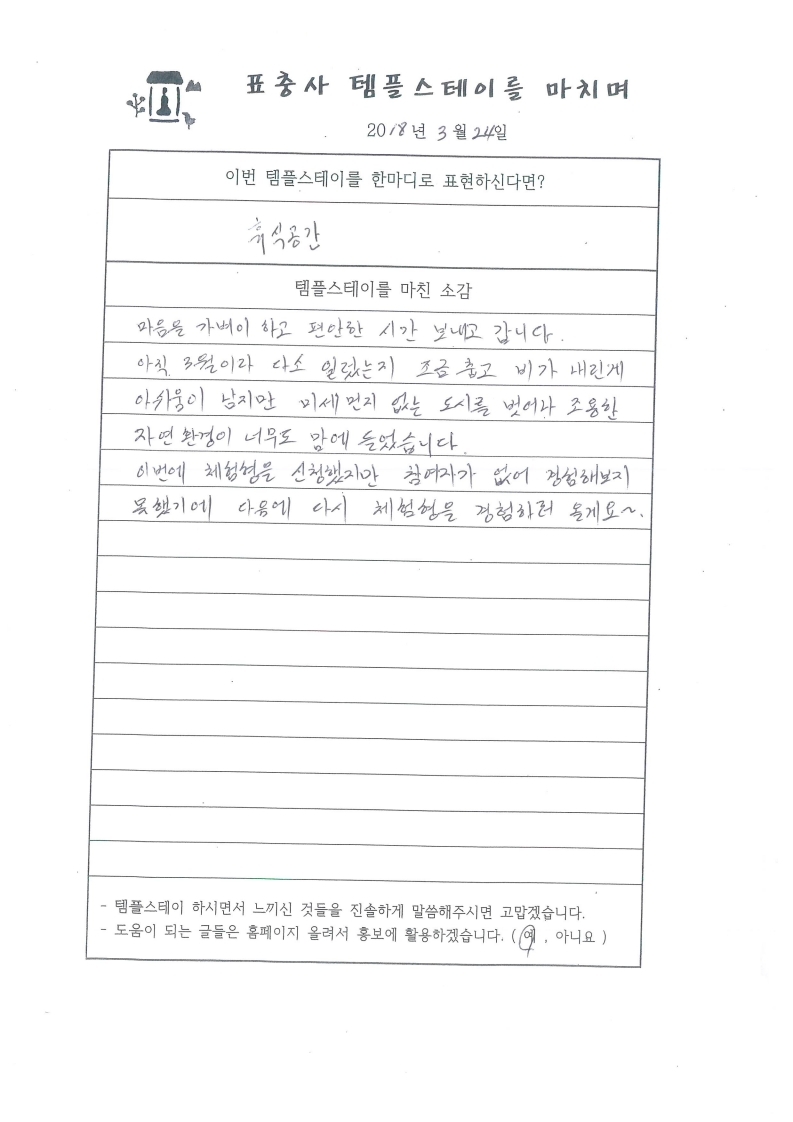 표충사 템플스테이를 마치며
2018년 3월 24일
이번 템플스테이를 한마디로 표현하신다면?
휴식공간
템플스테이를 마친 소감
마음을 가벼이 하고 편안한 시간 보내고 갑니다.
아직 3월이라 다소 일렀는지 조금 춥고 비가 내린게
아쉬움이 남지만 미세먼지 없는 도시를 벗어나 조용한
자연환경이 너무도 맘에 들었습니다.
이번에 체험형을 신청했지만 참여자가 없어 경험해보지
못했기에 다음에 다시 체험형을 경험하러 올게요~.
- 템플스테이 하시면서 느끼신 것들을 진솔하게 말씀해주시면 고맙겠습니다.
- 도움이 되는 글들은 홈페이지 올려서 홍보에 활용하겠습니다. ( 예 , 아니요 )